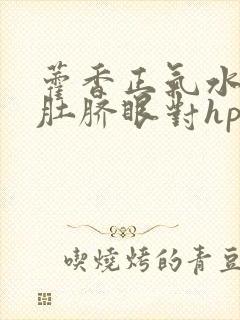 藿香正氣水
肚脐眼對hp
喫燒烤的青豆